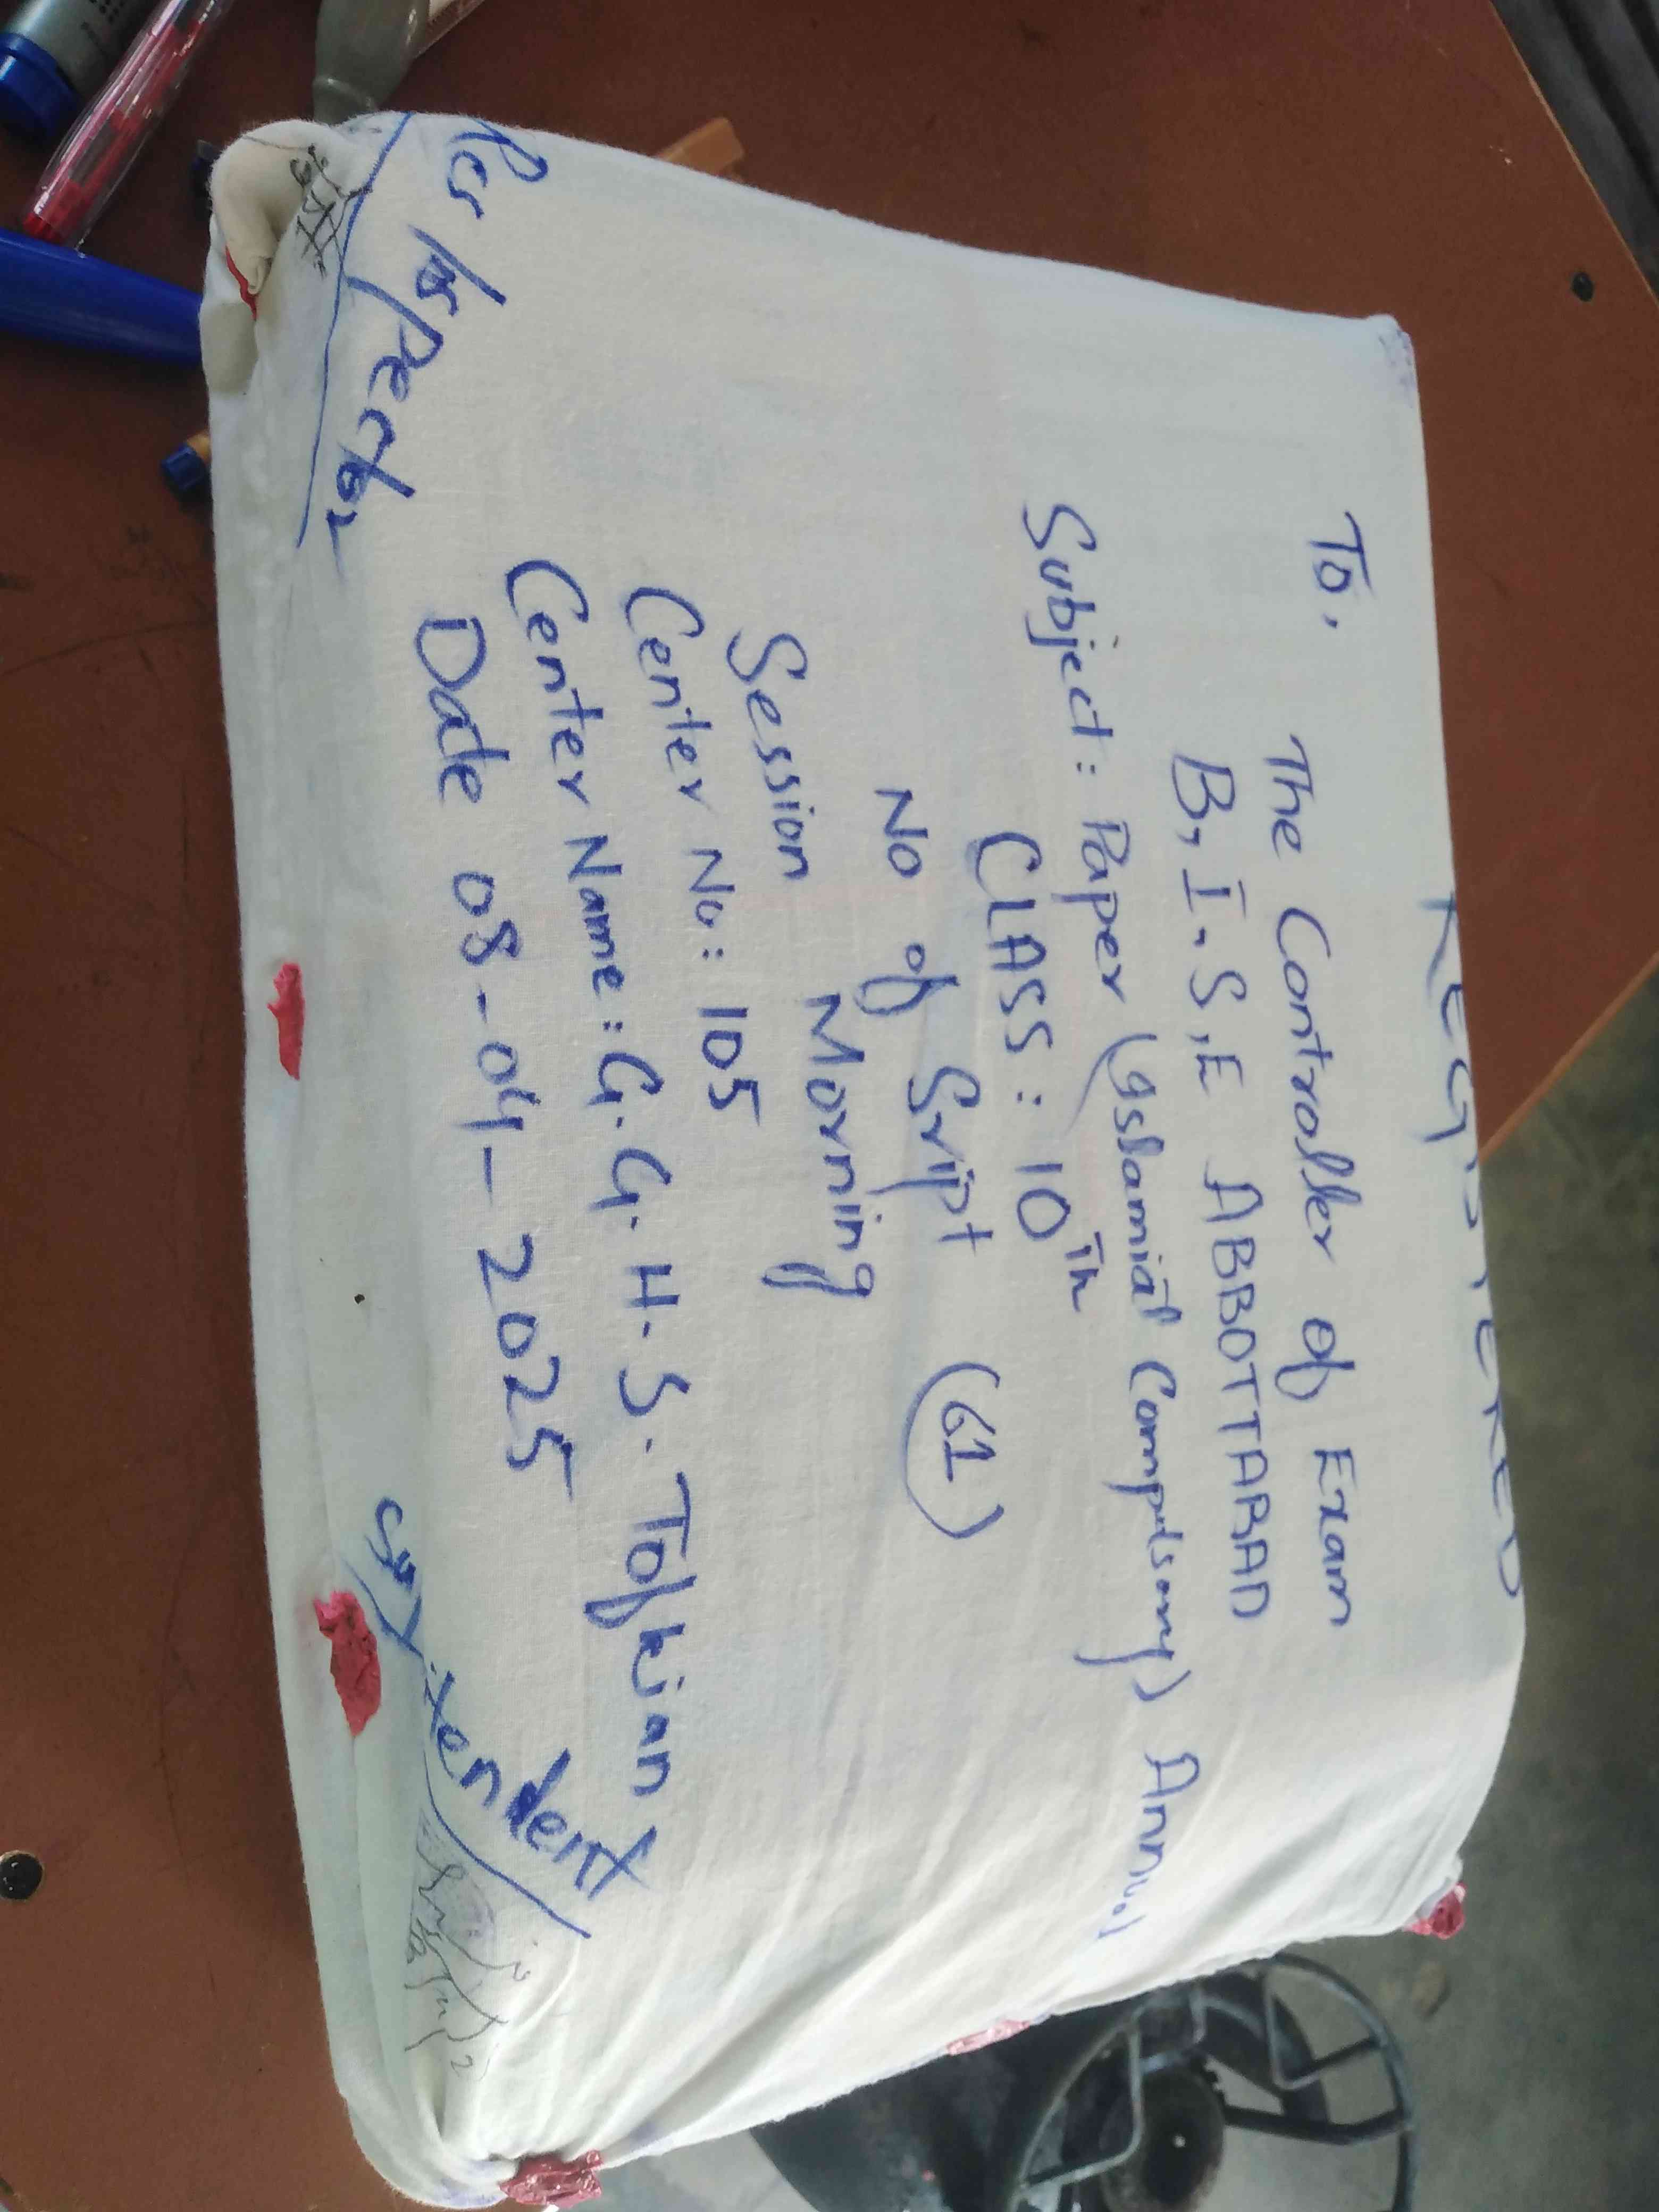 REGISTERED
To,
The Controller of Exam
B, I. S, E ABBOTTABAD
Subject: Paper (Isslamiat Compulsory) Annual
CLASS: 10th
No of Sript (61)
Session Morning
Center No: 105
Center Name: G. G. H. S. Tofkian
Date 08-04-2025